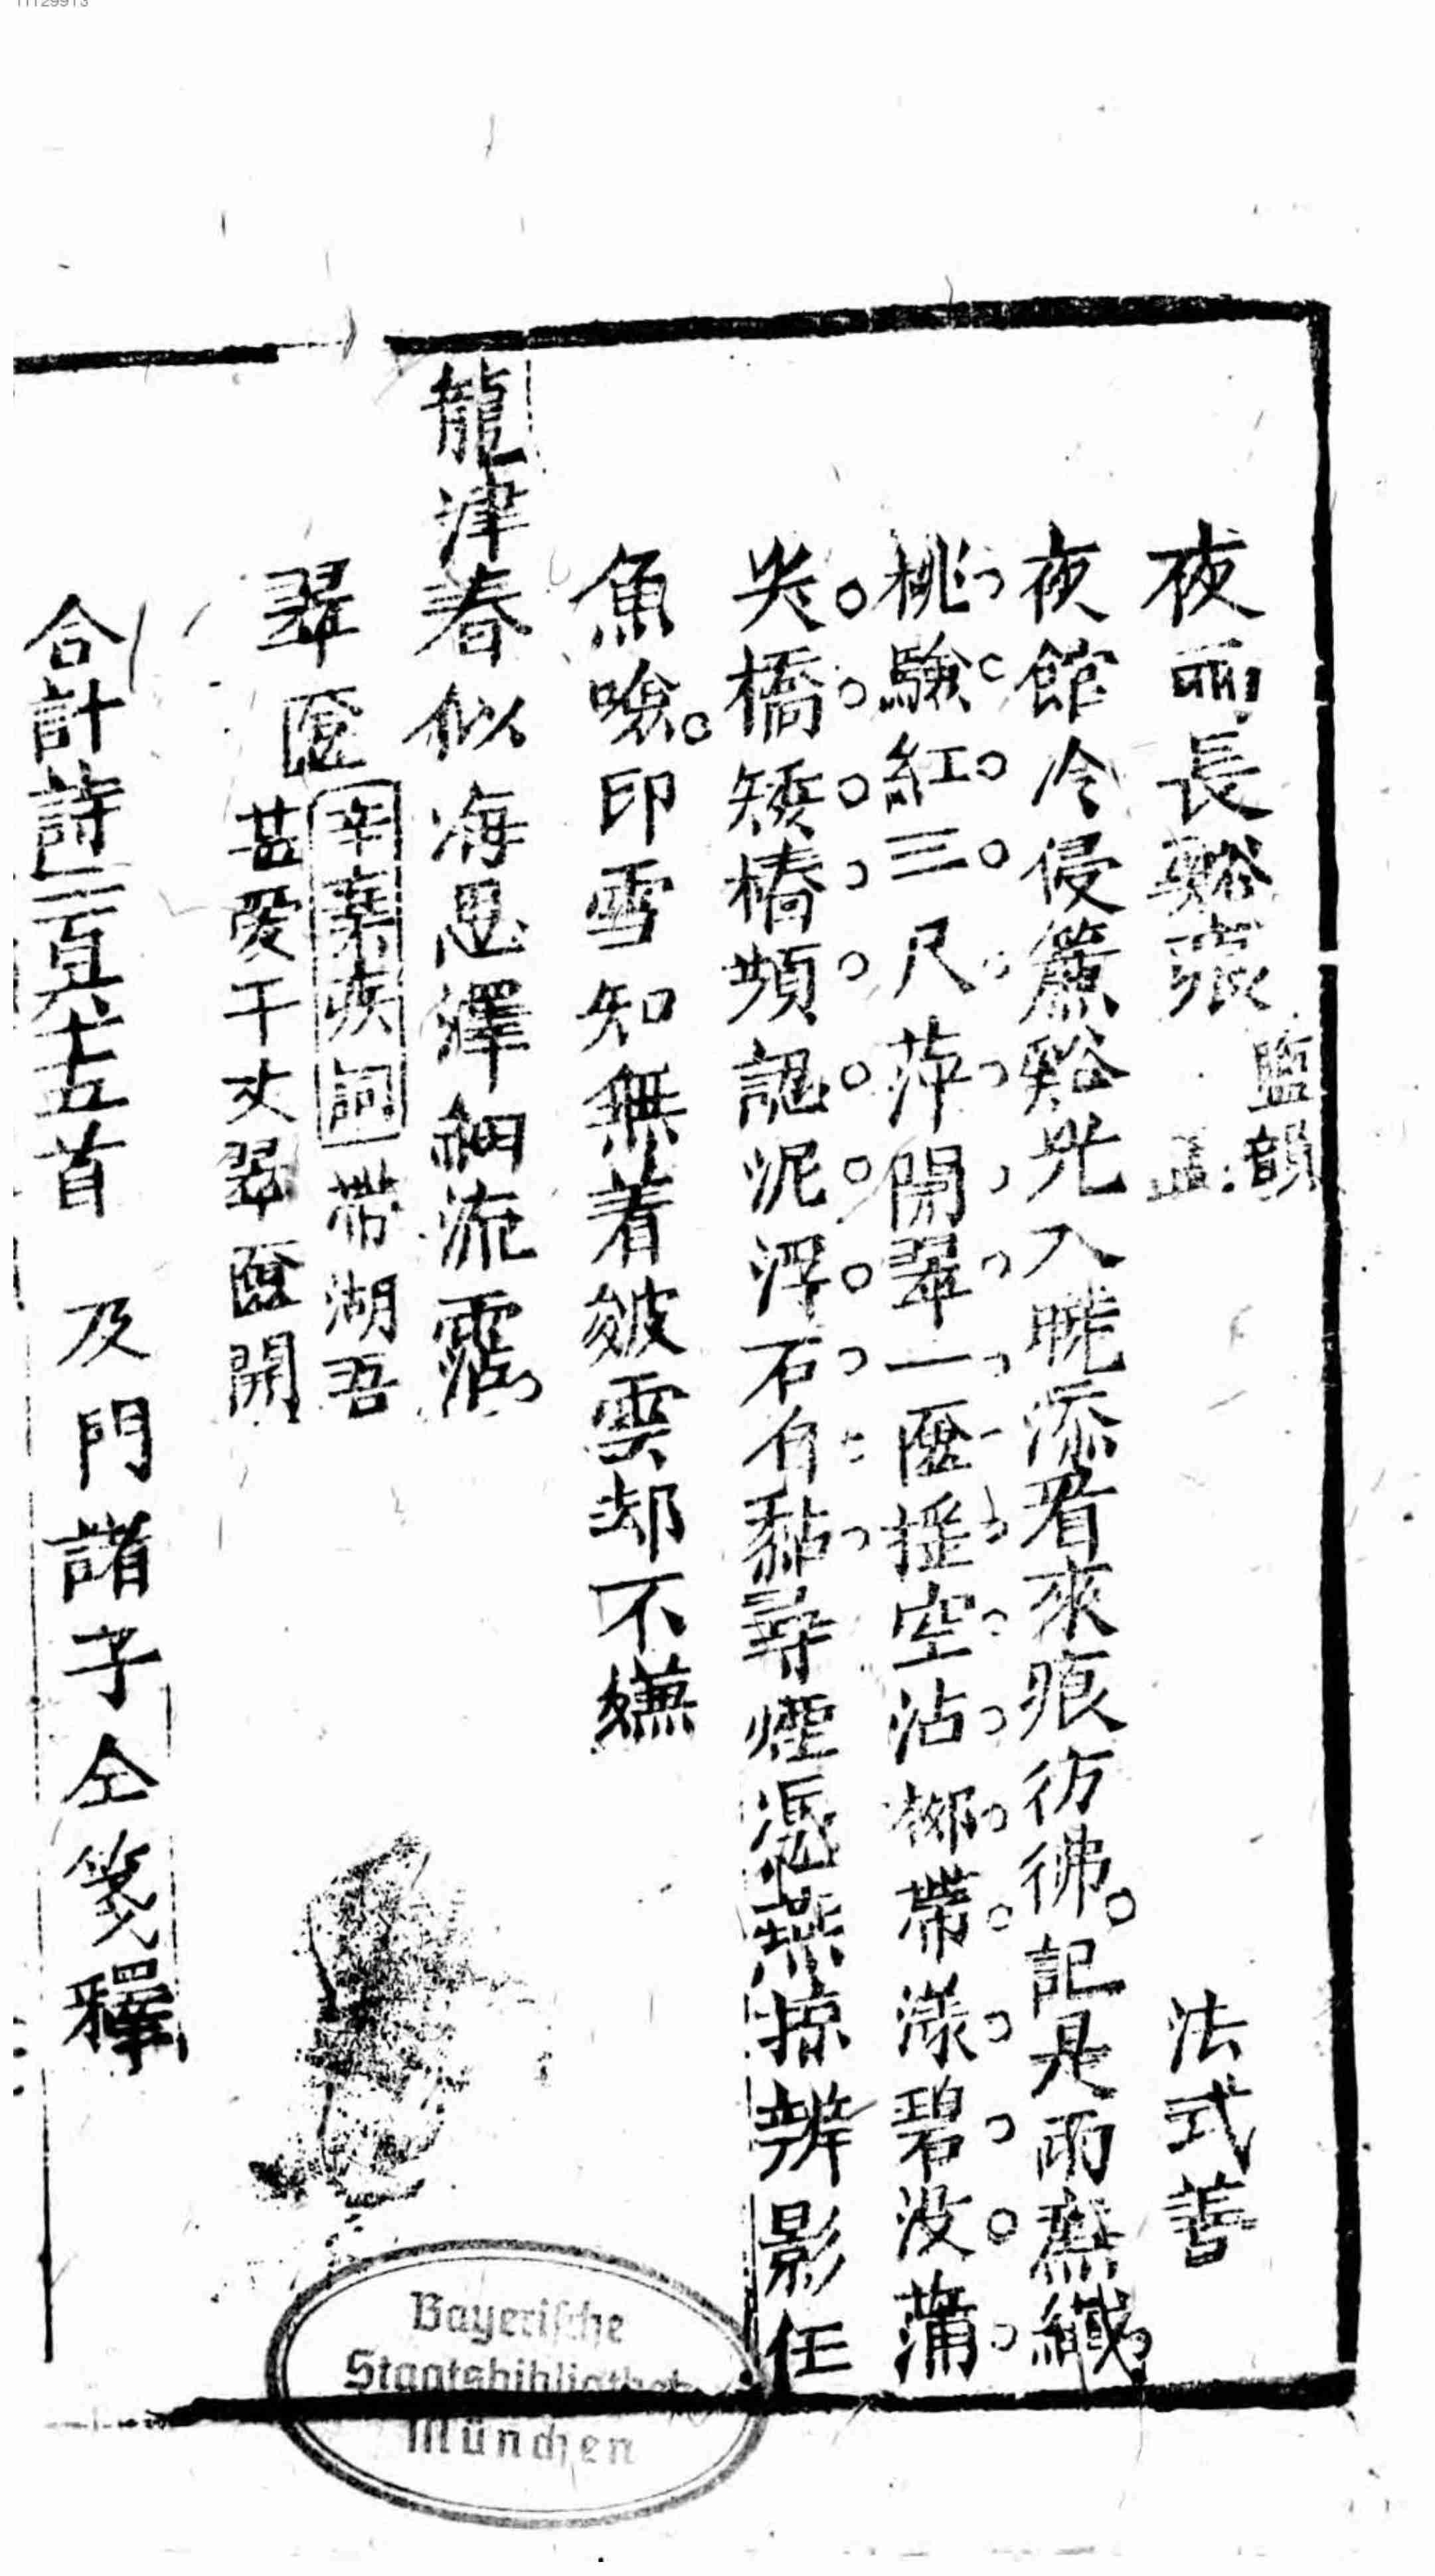 夜雨長谿痕 監韻 法式善
夜館冷侵簾谿光入曉添看來痕彷彿。記是雨無纖
桃驗紅三尺萍開翠一匳搖空沾桞帶漾碧没蒲
尖橋矮樁頻認泥浮石自黏尋煙慿燕掠辨影任
魚噞。印雪知無着皴雲却不嫌
龍津春似海恩澤細流霑
翠匳 辛棄疾詞帶湖吾
甚愛千丈翠匳開
合計詩二百八十五首 及門諸子仝箋釋
Bayerische
Staatsbibliothek
München